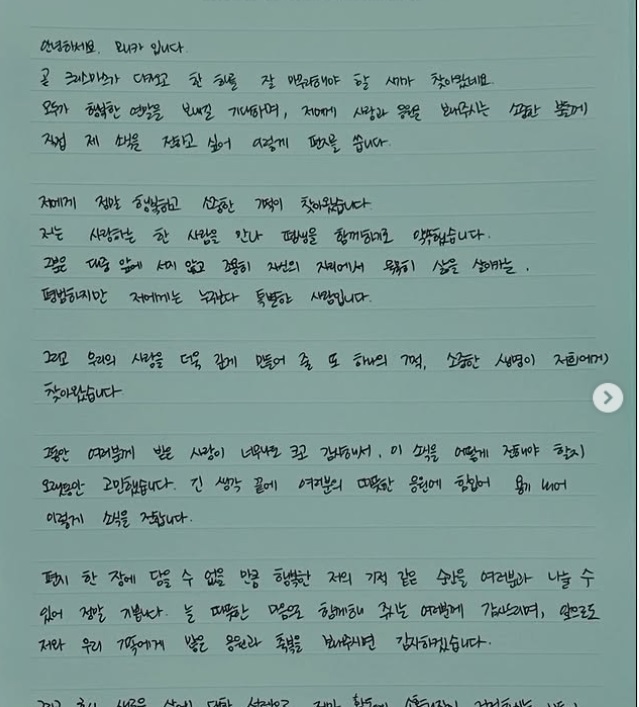 안녕하세요. 모니카 입니다.
곧 크리스마스가 다가오고 한 해를 잘 마무리해야 할 시기가 찾아왔네요.
모두가 행복한 연말을 보내길 기대하며, 저에게 사랑과 응원을 보내주시는 소중한 분들께
직접 제 소식을 전하고 싶어 이렇게 편지를 씁니다.
저에게 정말 행복하고 소중한 기적이 찾아왔습니다.
저는 사랑하는 한 사람을 만나 평생을 함께하기로 약속했습니다.
그분은 대중 앞에 서지 않고 조용히 자신의 자리에서 묵묵히 삶을 살아가는,
평범하지만 저에게는 누구보다 특별한 사람입니다.
그리고 우리의 사랑을 더욱 깊게 만들어 줄 또 하나의 기적, 소중한 생명이 저희에게
찾아왔습니다.
그동안 여러분께 받은 사랑이 너무나도 크고 감사해서, 이 소식을 어떻게 전해야 할지
오랫동안 고민했습니다. 긴 생각 끝에 여러분의 따뜻한 응원에 힘입어 용기 내어
이렇게 소식을 전합니다.
편지 한 장에 담을 수 없을 만큼 행복한 저의 기적 같은 순간을 여러분과 나눌 수
있어 정말 기쁩니다. 늘 따뜻한 마음으로 함께해 주시는 여러분께 감사드리며, 앞으로도
저와 우리 가족에게 많은 응원과 축복을 보내주시면 감사하겠습니다.